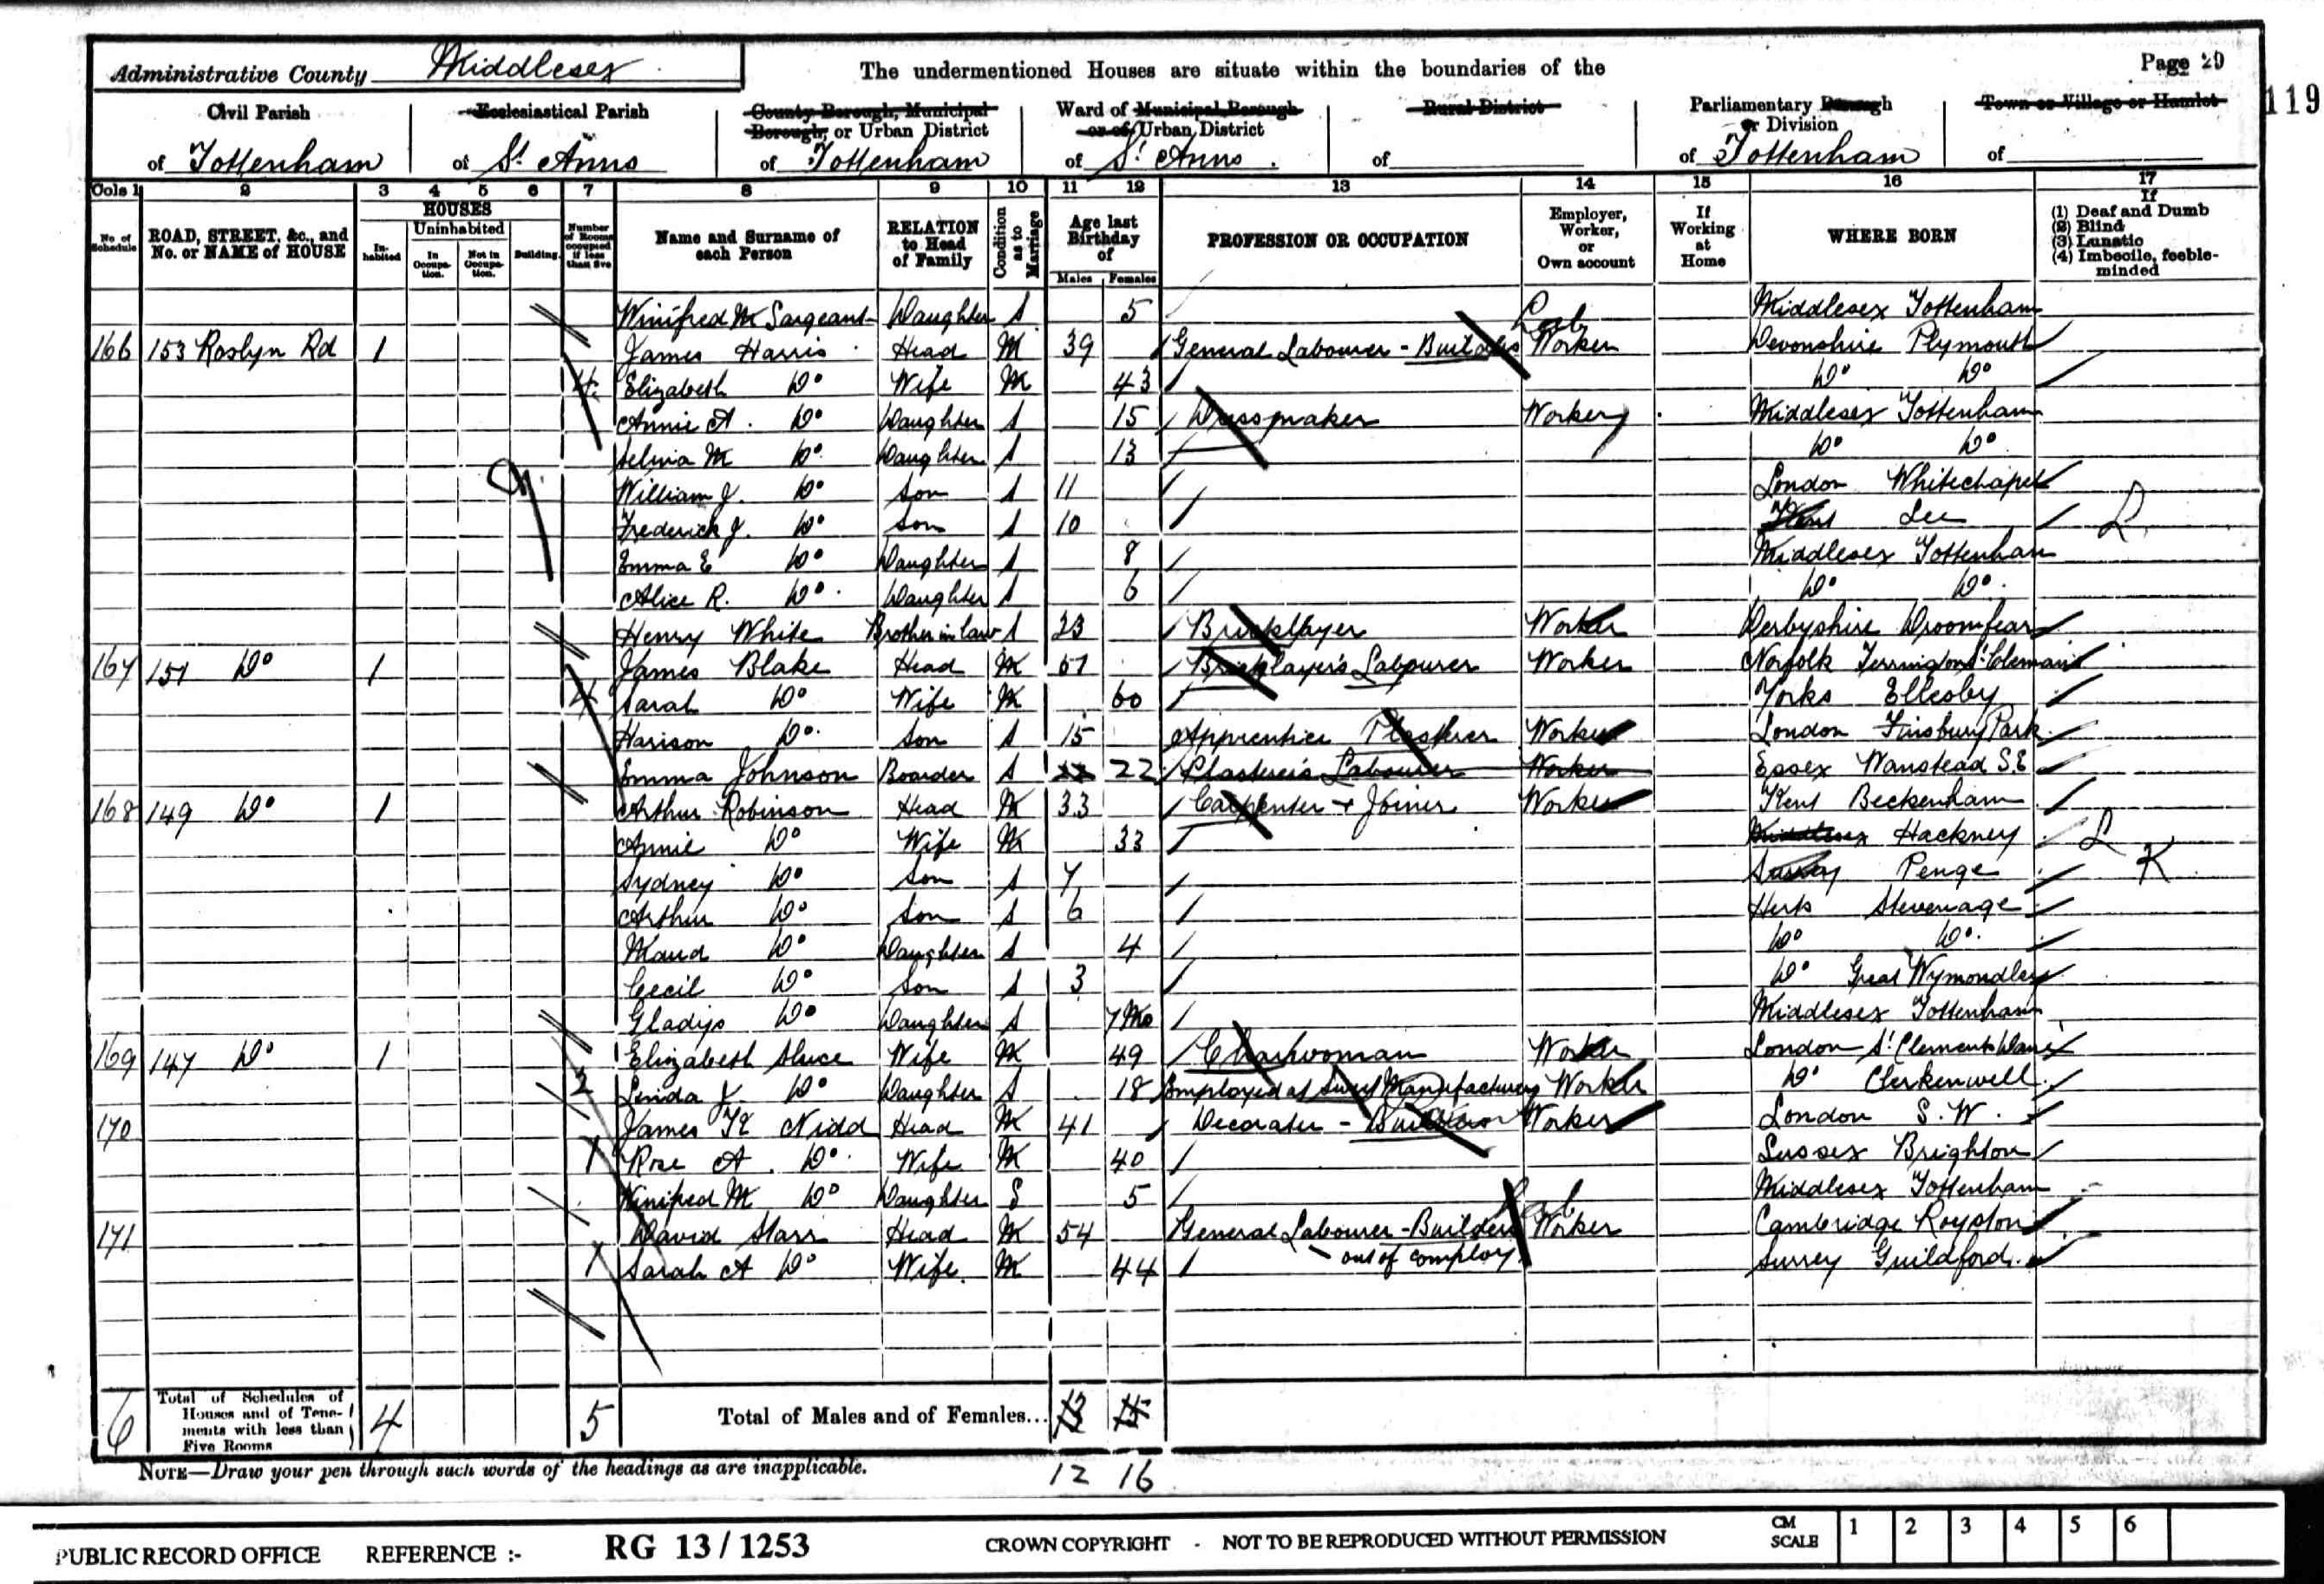 Administrative County Middlesex
The undermentioned Houses are situate within the boundaries of the
Page 29
119
Civil Parish of Tottenham
Ecclesiastical Parish of St. Anns
County Borough, Municipal Borough, or Urban District of Tottenham
Ward of Municipal Borough or of Urban District of St. Anns.
Rural District of
Parliamentary Borough or Division of Tottenham
Town or Village or Hamlet of
Cols 1 2 3 4 5 6 7 8 9 10 11 12 13 14 15 16 17
No. of Schedule
ROAD, STREET, &c., and No. or NAME of HOUSE
HOUSES
In-habited
Uninhabited
In Occupa-tion.
Not in Occupa-tion.
Building.
Number of Rooms occupied if less than five
Name and Surname of each Person
RELATION to Head of Family
Condition as to Marriage
Age last Birthday of
Males Females
PROFESSION OR OCCUPATION
Employer, Worker, or Own account
If Working at Home
WHERE BORN
If (1) Deaf and Dumb (2) Blind (3) Lunatic (4) Imbecile, feeble-minded
Winifred M Sargeant Daughter S 5 Middlesex Tottenham
166 153 Roslyn Rd 1 James Harris Head M 39 General Labourer - Builders Worker Devonshire Plymouth
4 Elizabeth Do Wife M 43 Do Do
Annie A. Do Daughter S 15 Dressmaker Worker Middlesex Tottenham
Selina M Do Daughter S 13 Do Do
William J. Do Son S 11 London Whitechapel
Frederick J. Do Son S 10 Kent Lee L
Emma E Do Daughter S 8 Middlesex Tottenham
Alice R. Do Daughter S 6 Do Do
Henry White Brother in law S 23 Bricklayer Worker Derbyshire
167 151 Do 1 James Blake Head M 61 Bricklayer's Labourer Worker Norfolk Terrington St.
4 Sarah Do Wife M 60 Yorks Ellesby
Harison Do Son S 15 Apprentice Plasterer Worker London Finsbury Park
Emma Johnson Boarder S 22 22 Plasterer's Labourer Worker Essex Wanstead S.E
168 149 Do 1 Arthur Robinson Head M 33 Carpenter + Joiner Worker Kent Beckenham
Annie Do Wife M 33 Middlesex Hackney L
Sydney Do Son S 7 Surrey Penge K
Arthur Do Son S 6 Herts Stevenage
Maud Do Daughter S 4 Do Do
Cecil Do Son S 3 Do Great Wymondley
Gladys Do Daughter S 7 Mo Middlesex Tottenham
169 147 Do 1 Elizabeth Sluce Wife M 49 Charwoman Worker London St. Clement Danes
2 Linda J. Do Daughter S 18 Employed at Sweet Manufacturers Worker Do Clerkenwell
170 James Nidd Head M 41 Decorator - Worker London S.W.
1 Rose A. Do Wife M 40 Sussex Brighton
Winifred M Do Daughter S 5 Middlesex Tottenham
171 David Starr Head M 54 General Labourer - Builders Worker Cambridge Royston
- out of employ
1 Sarah A Do Wife M 44 Surrey Guildford
6 Total of Schedules of Houses and of Tene-ments with less than Five Rooms 4 5 Total of Males and of Females... 13 15
NOTE—Draw your pen through such words of the headings as are inapplicable.
12 16
PUBLIC RECORD OFFICE REFERENCE :- RG 13 / 1253 CROWN COPYRIGHT - NOT TO BE REPRODUCED WITHOUT PERMISSION
CM SCALE 1 2 3 4 5 6